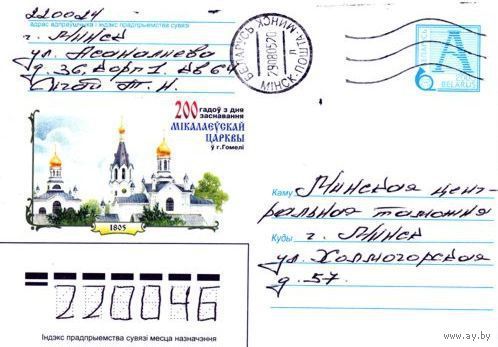 220024
адрас адпраўшчыка і індэкс прадпрыемства сувязі
г. Минск
ул. Асаналиева
д. 36, корп 1. кв 64
Т. Н.
200 гадоў з дня
заснавання
МІКАЛАЕЎСКАЙ
ЦАРКВЫ
ў г. Гомелі
1805
БЕЛАРУСЬ МІНСК
290805-20
ПОШТА-МИНСК
А
BELARUS
Каму Минская цент-
ральная таможня
Куды г. Минск
ул. Холмогорская
д. 57.
220046
Індэкс прадпрыемства сувязі месца назначэння
www.ay.by